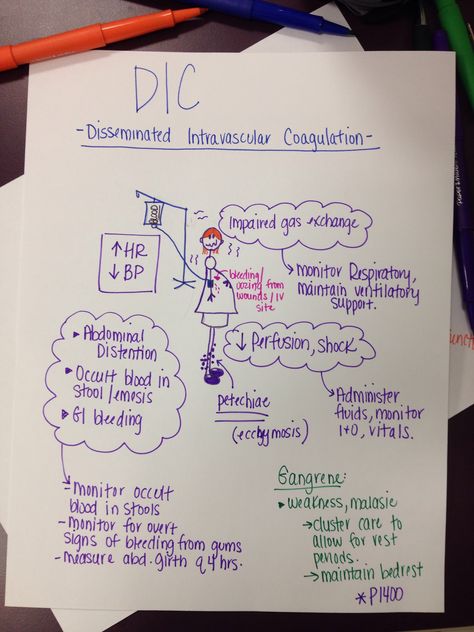 DIC
- Disseminated Intravascular Coagulation -
BLOOD
Impaired gas exchange
↑HR
↓BP
bleeding/
oozing from
wounds/IV
site
monitor Respiratory,
maintain ventilatory
support.
▸ Abdominal
Distention
▸ Occult blood in
stool/emosis
▸ GI bleeding
↓ Perfusion, shock
petechiae
(ecchymosis)
Administer
fluids, monitor
I+O, vitals.
- monitor occult
blood in stools
- monitor for overt
signs of bleeding from gums
- measure abd. girth q 4 hrs.
Gangrene:
▸ weakness, malasie
→ cluster care to
allow for rest
periods.
→ maintain bedrest
* P1400